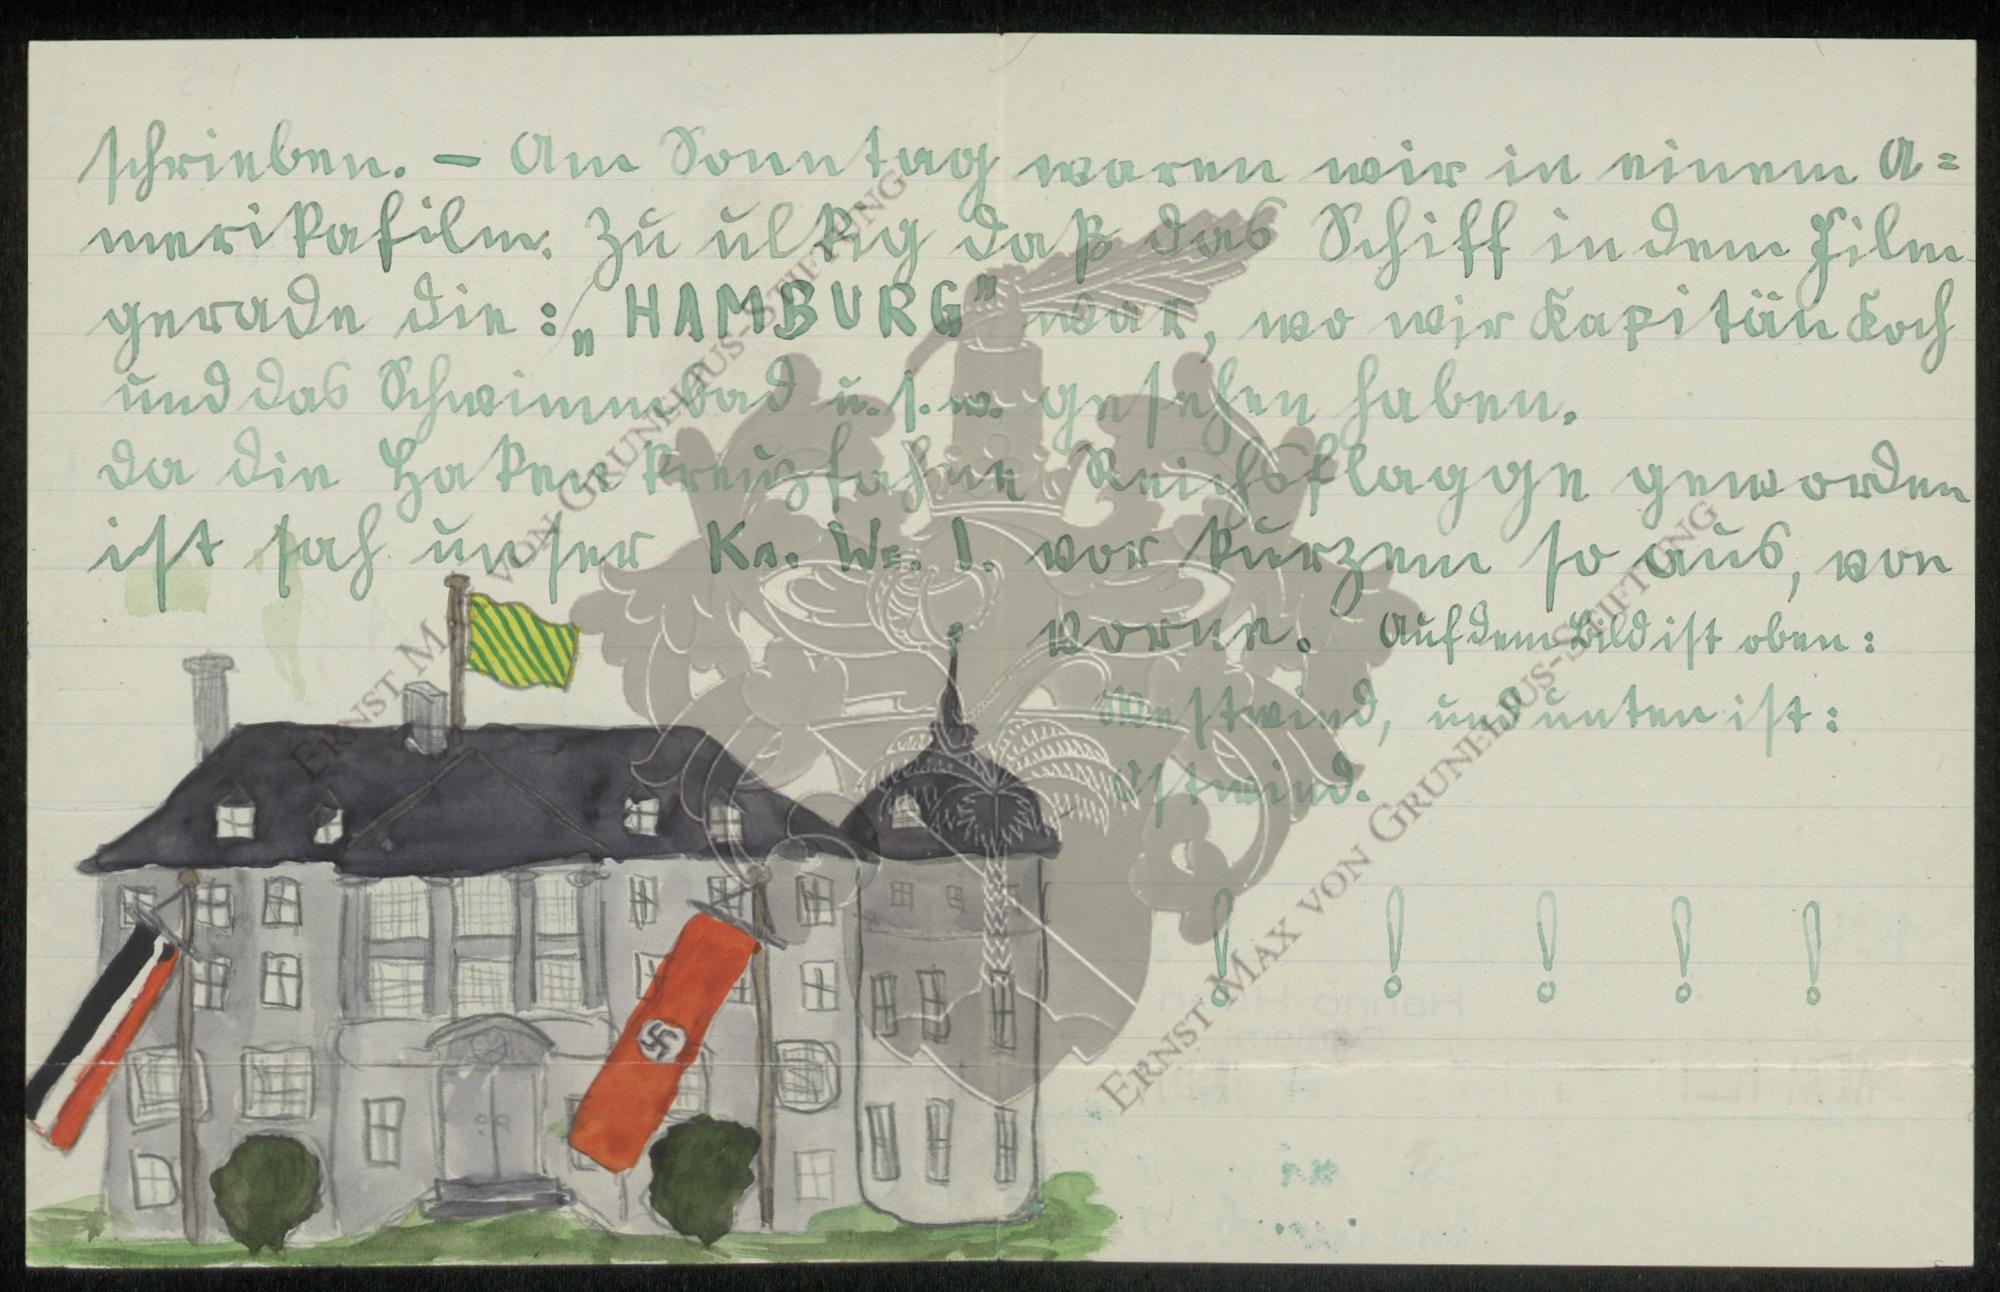 schrieben. – Am Sonntag waren wir in einem A=
merikafilm. Zu ulkig daß das Schiff in dem Film
gerade die: „HAMBURG" war, wo wir Kapitän Koch
und das Schwimmbad u. s. w. gesehen haben.
Da die Hakenkreuzfahne Reichsflagge geworden
ist sah unser Kr. We. I. vor kurzem so aus, von
vorne. Auf dem Bild ist oben:
Westwind, und unten ist:
Ostwind.
! ! ! ! !
ERNST MAX VON GRUNELIUS-STIFTUNG
ERNST MAX VON GRUNELIUS-STIFTUNG